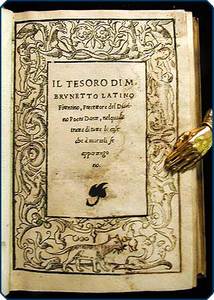 IL TESORO DI M.
BRVNETTO LATINO
Firentino, Precettore del Diui-
no Poeta Dante, nel quale si
tratta di tutte le cose
che à mortali se
appartengo
no.